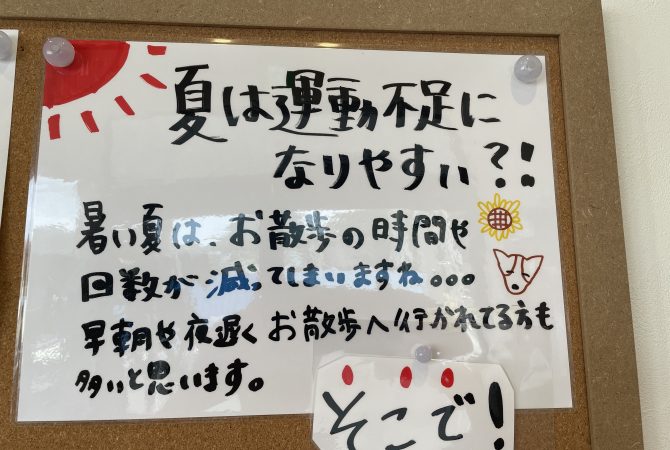 夏は運動不足に
なりやすい?!
暑い夏は、お散歩の時間や
回数が減ってしまいますね。。。
早朝や夜遅くお散歩へ行かれてる方も
多いと思います。
そこで!